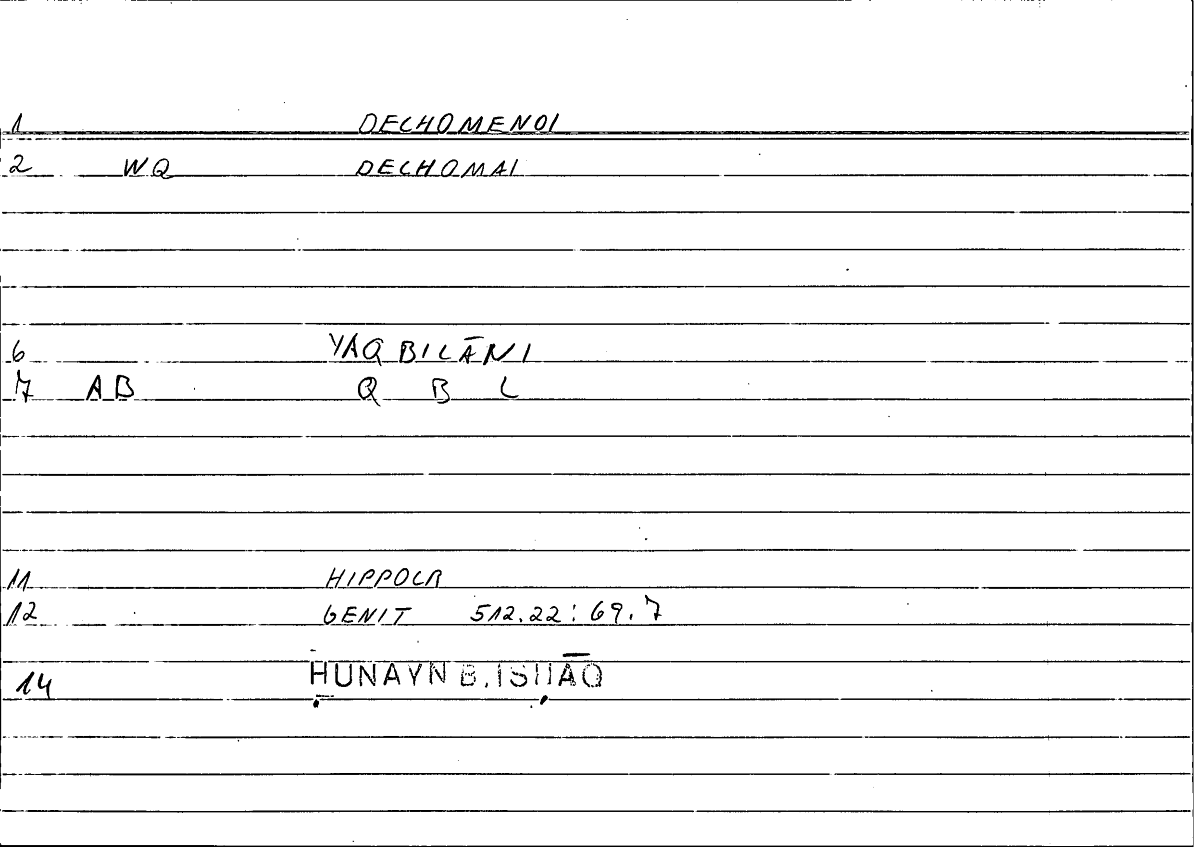 1 DECHOMENOI
2 WQ DECHOMAI
6 YAQBILĀNI
7 AB Q B L
11 HIPPOCR
12 GENIT 512.22:69.7
14 ḤUNAYN B. ISḤĀQ